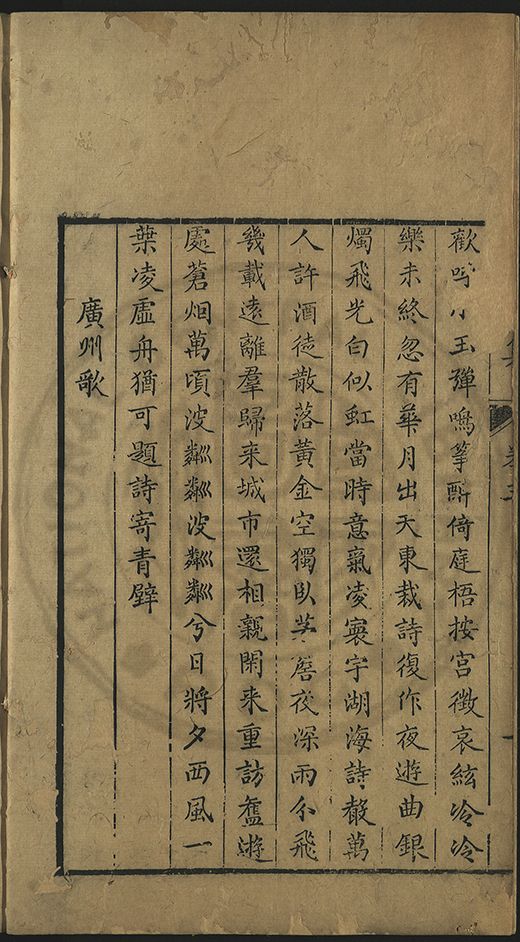 歡呼小玉彈鳴箏酔倚庭梧按宮徵哀絃冷冷
樂未終忽有華月出天東裁詩復作夜遊曲銀
燭飛光白似虹當時意氣凌寰宇湖海詩聲萬
人許酒徒散落黃金空獨臥茅簷夜深雨分飛
幾載遠離羣歸来城市還相親閑来重訪舊遊
處蒼烟萬頃波粼粼波粼粼兮日將夕西風一
葉凌虛舟猶可題詩寄青壁
廣州歌